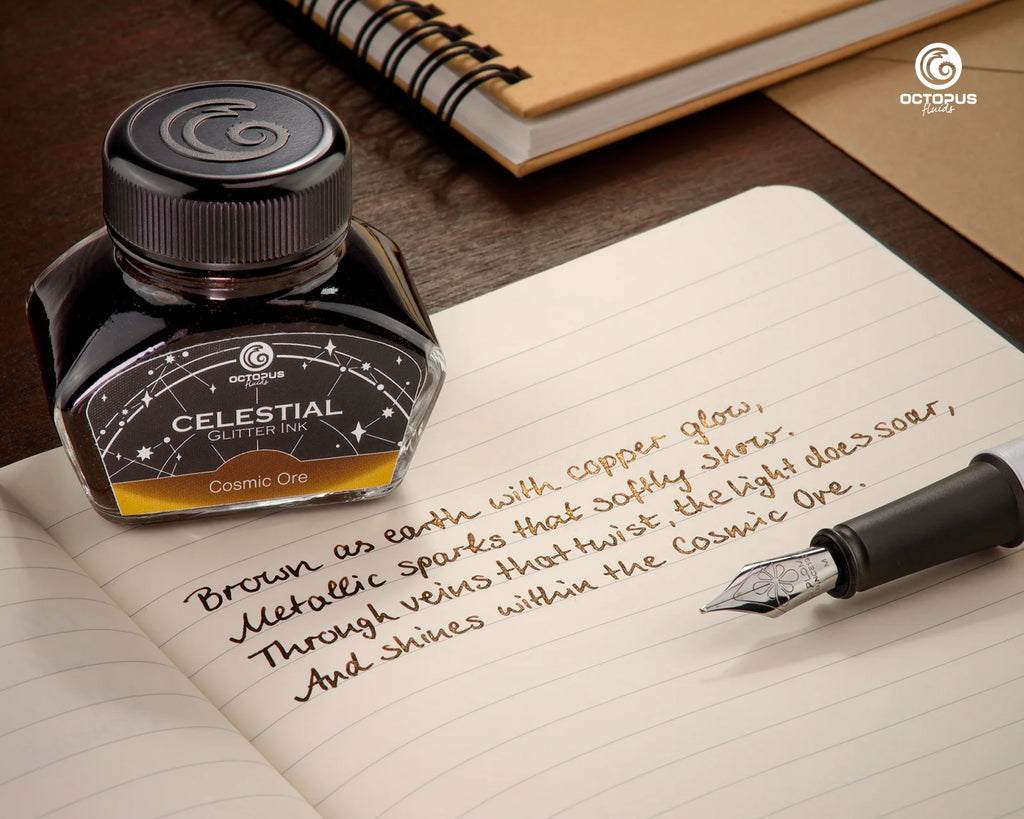 OCTOPUS
fluids
OCTOPUS
fluids
CELESTIAL
GLITTER INK
Cosmic Ore
Brown as earth with copper glow,
Metallic sparks that softly show.
Through veins that twist, the light does soar,
And shines within the Cosmic Ore.
M